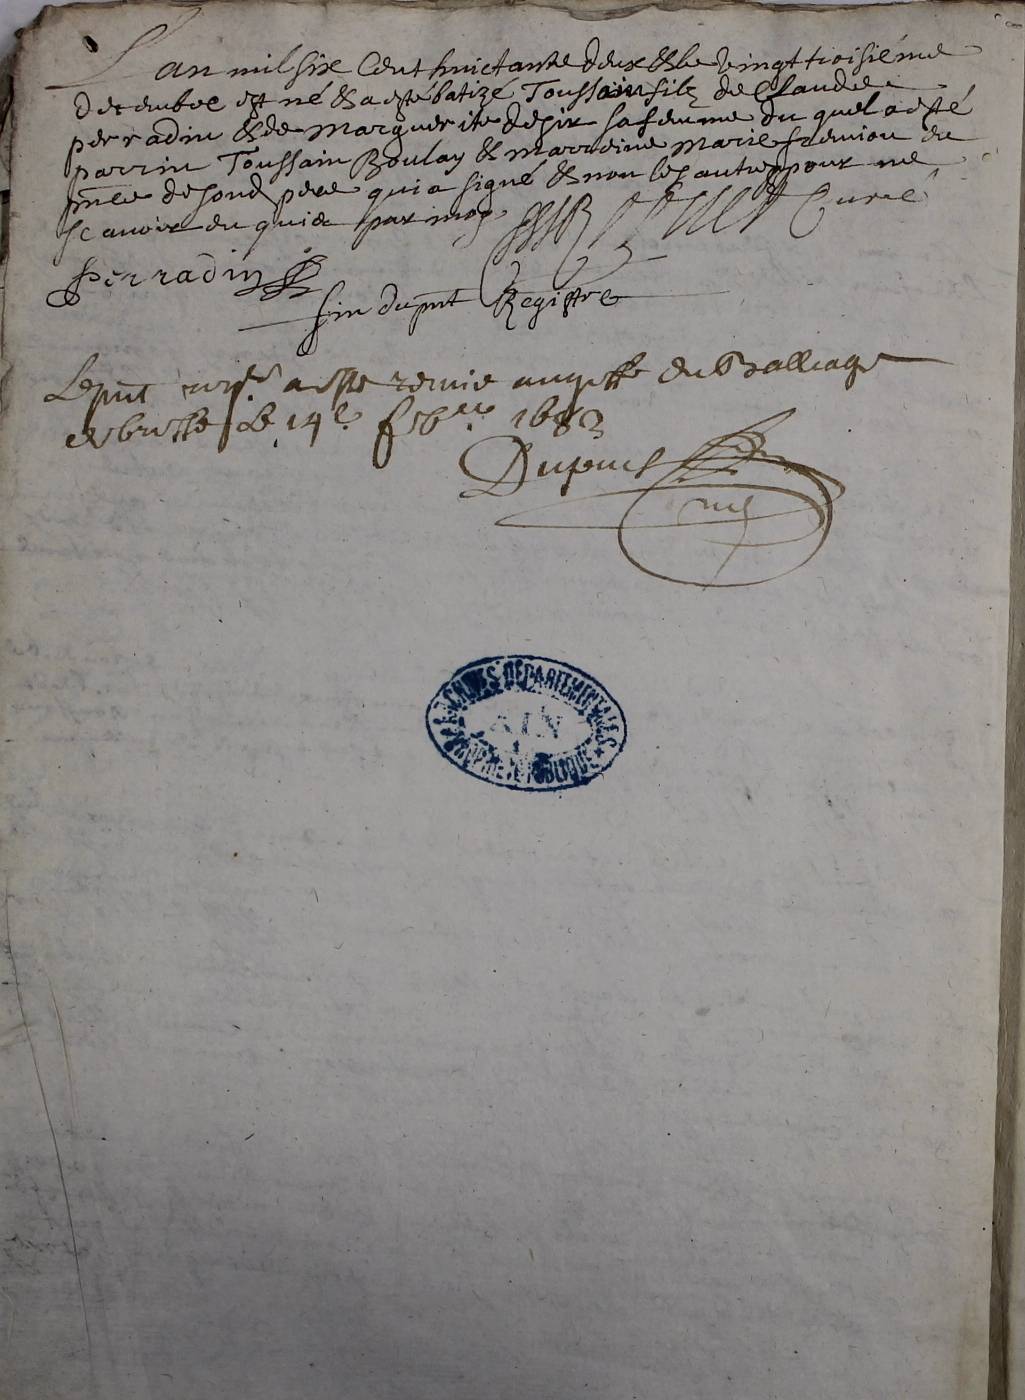 L'an mil six Cent huictante deux & le vingt troisiéme
decembre est né & a esté batizé Toussain filz de Claude
perradin & de Marguerite depir sa femme du quel a esté
parrin Toussain Boulay & marreine Marie en
pnce desond pere qui a signé & non les autres pour ne
scavoir en quis par moy Curé
Perradin
fin du pnt Registre
Le pnt a esté remis au greffe du Balliage
de bresse Le 14e feb 1683
Dupuis
ARCHIVES DÉPARTEMENTALES
AIN
PROPRIÉTÉ PUBLIQUE